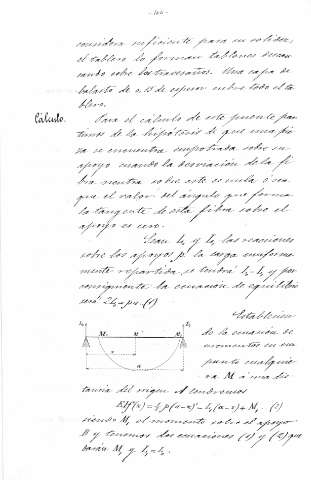 considera suficiente para su solidez,
el tablero lo forman tablones descan
sando sobre los travesaños. Una capa de
balasto de 0,15 de espesor cubre todo el ta
blero.
Cálculo.
Para el cálculo de este puente par
timos de la hipótesis de que una pie
za se encuentra empotrada sobre su
apoyo cuando la desviación de la fi
bra neutra sobre este es nula ó sea
que el valor del ángulo que forma
la tangente de esta fibra sobre el
apoyo es cero.
Sean y las reacciones
sobre los apoyos p la carga uniforme
mente repartida, se tendrá y por
consiguiente la ecuación de equilibrio
será
Establecien
do la ecuación de
momentos en un
punto cualquie
ra M á una dis
tancia del origen A tendremos
siendo M, el momento sobre el apoyo
B y tenemos dos ecuaciones (1) y (2) que
darán M, y